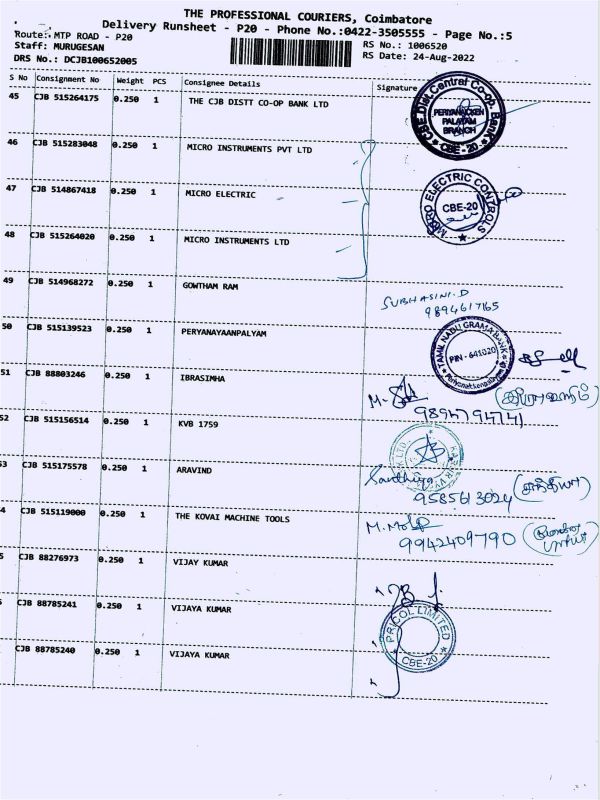 THE PROFESSIONAL COURIERS, Coimbatore
Delivery Runsheet - P20 - Phone No.:0422-3505555 - Page No.:5
Route: MTP ROAD - P20
RS No.: 1006520
Staff: MURUGESAN
RS Date: 24-Aug-2022
DRS No.: DCJB100652005
S No Consignment No Weight PCS Consignee Details Signature
45 CJB 515264175 0.250 1 THE CJB DISTT CO-OP BANK LTD
CBE Dist Central Co-op. Bank
PERIYANAICKEN
PALAYAM
BRANCH
CBE - 20
46 CJB 515283048 0.250 1 MICRO INSTRUMENTS PVT LTD
47 CJB 514867418 0.250 1 MICRO ELECTRIC
MICRO ELECTRIC CONTROLS
CBE-20
48 CJB 515264020 0.250 1 MICRO INSTRUMENTS LTD
49 CJB 514968272 0.250 1 GOWTHAM RAM
SUBHASINI.D
9894617165
50 CJB 515139523 0.250 1 PERYANAYAANPALYAM
TAMIL NADU GRAMA BANK
PIN - 641020
51 CJB 88803246 0.250 1 IBRASIMHA
52 CJB 515156514 0.250 1 KVB 1759
53 CJB 515175578 0.250 1 ARAVIND
Sandhiya
9585613024 (சந்தியா)
4 CJB 515119000 0.250 1 THE KOVAI MACHINE TOOLS
9942409790
5 CJB 88276973 0.250 1 VIJAY KUMAR
CJB 88785241 0.250 1 VIJAYA KUMAR
PRICOL LIMITED
CBE-20
CJB 88785240 0.250 1 VIJAYA KUMAR